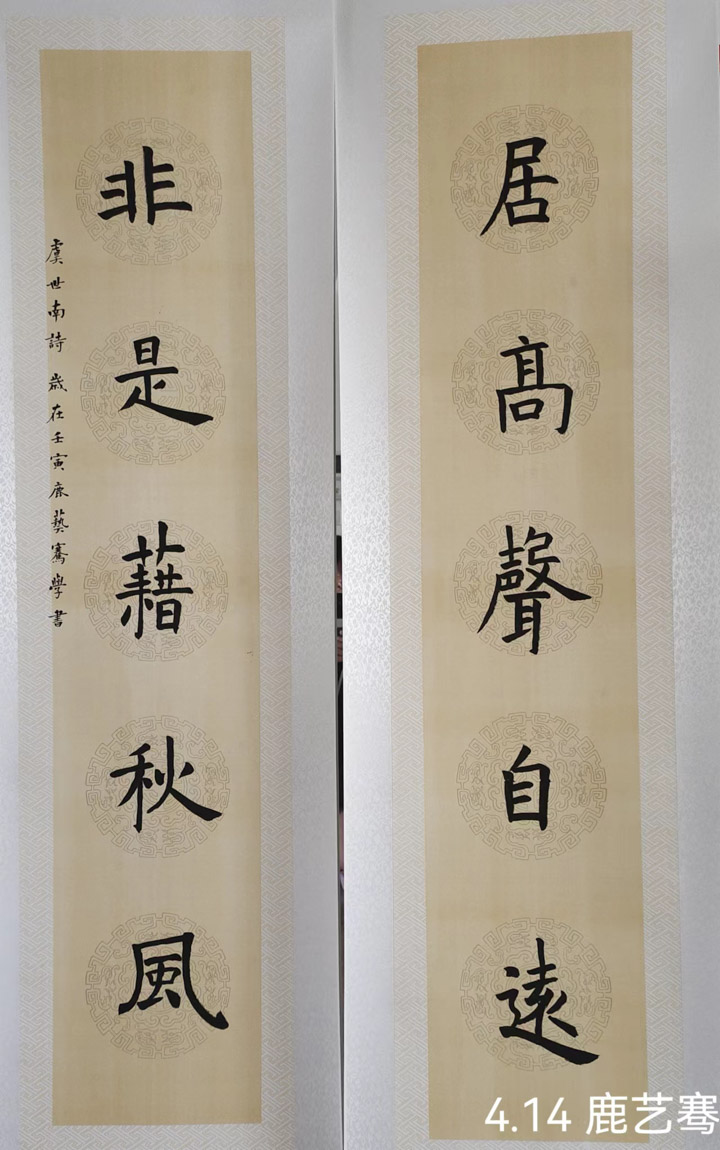 居高聲自遠
非是藉秋風
虞世南詩 歲在壬寅鹿藝騫學書
4.14 鹿艺骞